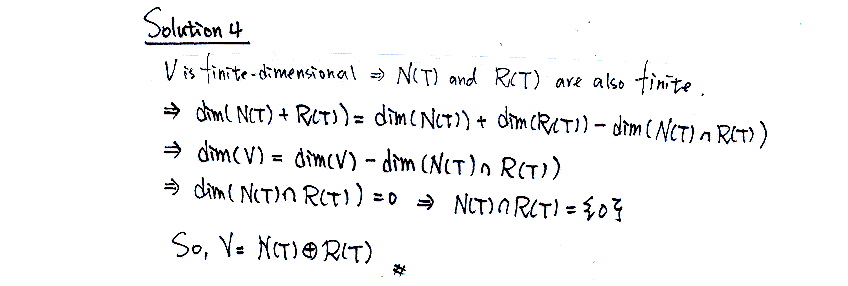 Solution 4
V is finite-dimensional ⇒ N(T) and R(T) are also finite.
⇒ dim(N(T) + R(T)) = dim(N(T)) + dim(R(T)) - dim(N(T) ∩ R(T))
⇒ dim(V) = dim(V) - dim(N(T) ∩ R(T))
⇒ dim(N(T) ∩ R(T)) = 0 ⇒ N(T) ∩ R(T) = {0}
So, V = N(T) ⊕ R(T) #